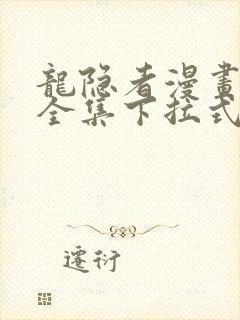 龍隐者漫畫
全集下拉式
遷衍